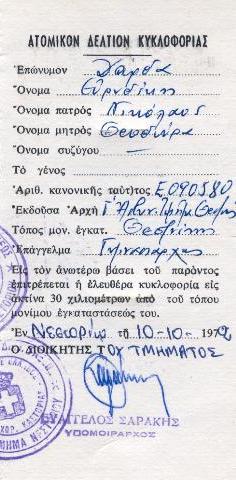 ΑΤΟΜΙΚΟΝ ΔΕΛΤΙΟΝ ΚΥΚΛΟΦΟΡΙΑΣ
Ἐπώνυμον
Ὄνομα Εὐρυδίκη
Ὄνομα πατρός Νικόλαος
Ὄνομα μητρός Θεοδώρα
Ὄνομα συζύγου
Τὸ γένος
Ἀριθ. κανονικῆς ταὐτητος Ε090580
Ἐκδοῦσα Ἀρχή Γ'
Τόπος μον. ἐγκατ.
Ἐπάγγελμα
Εἰς τὸν ἀνωτέρω βάσει τοῦ παρόντος
ἐπιτρέπεται ἡ ἐλευθέρα κυκλοφορία εἰς
ἀκτίνα 30 χιλιομέτρων ἀπὸ τοῦ τόπου
μονίμου ἐγκαταστάσεώς του.
Ἐν Νεστορίῳ τῇ 10-10-1972
Ο ΔΙΟΙΚΗΤΗΣ ΤΟΥ ΤΜΗΜΑΤΟΣ
ΕΥΑΓΓΕΛΟΣ ΣΑΡΑΚΗΣ
ΥΠΟΜΟΙΡΑΡΧΟΣ